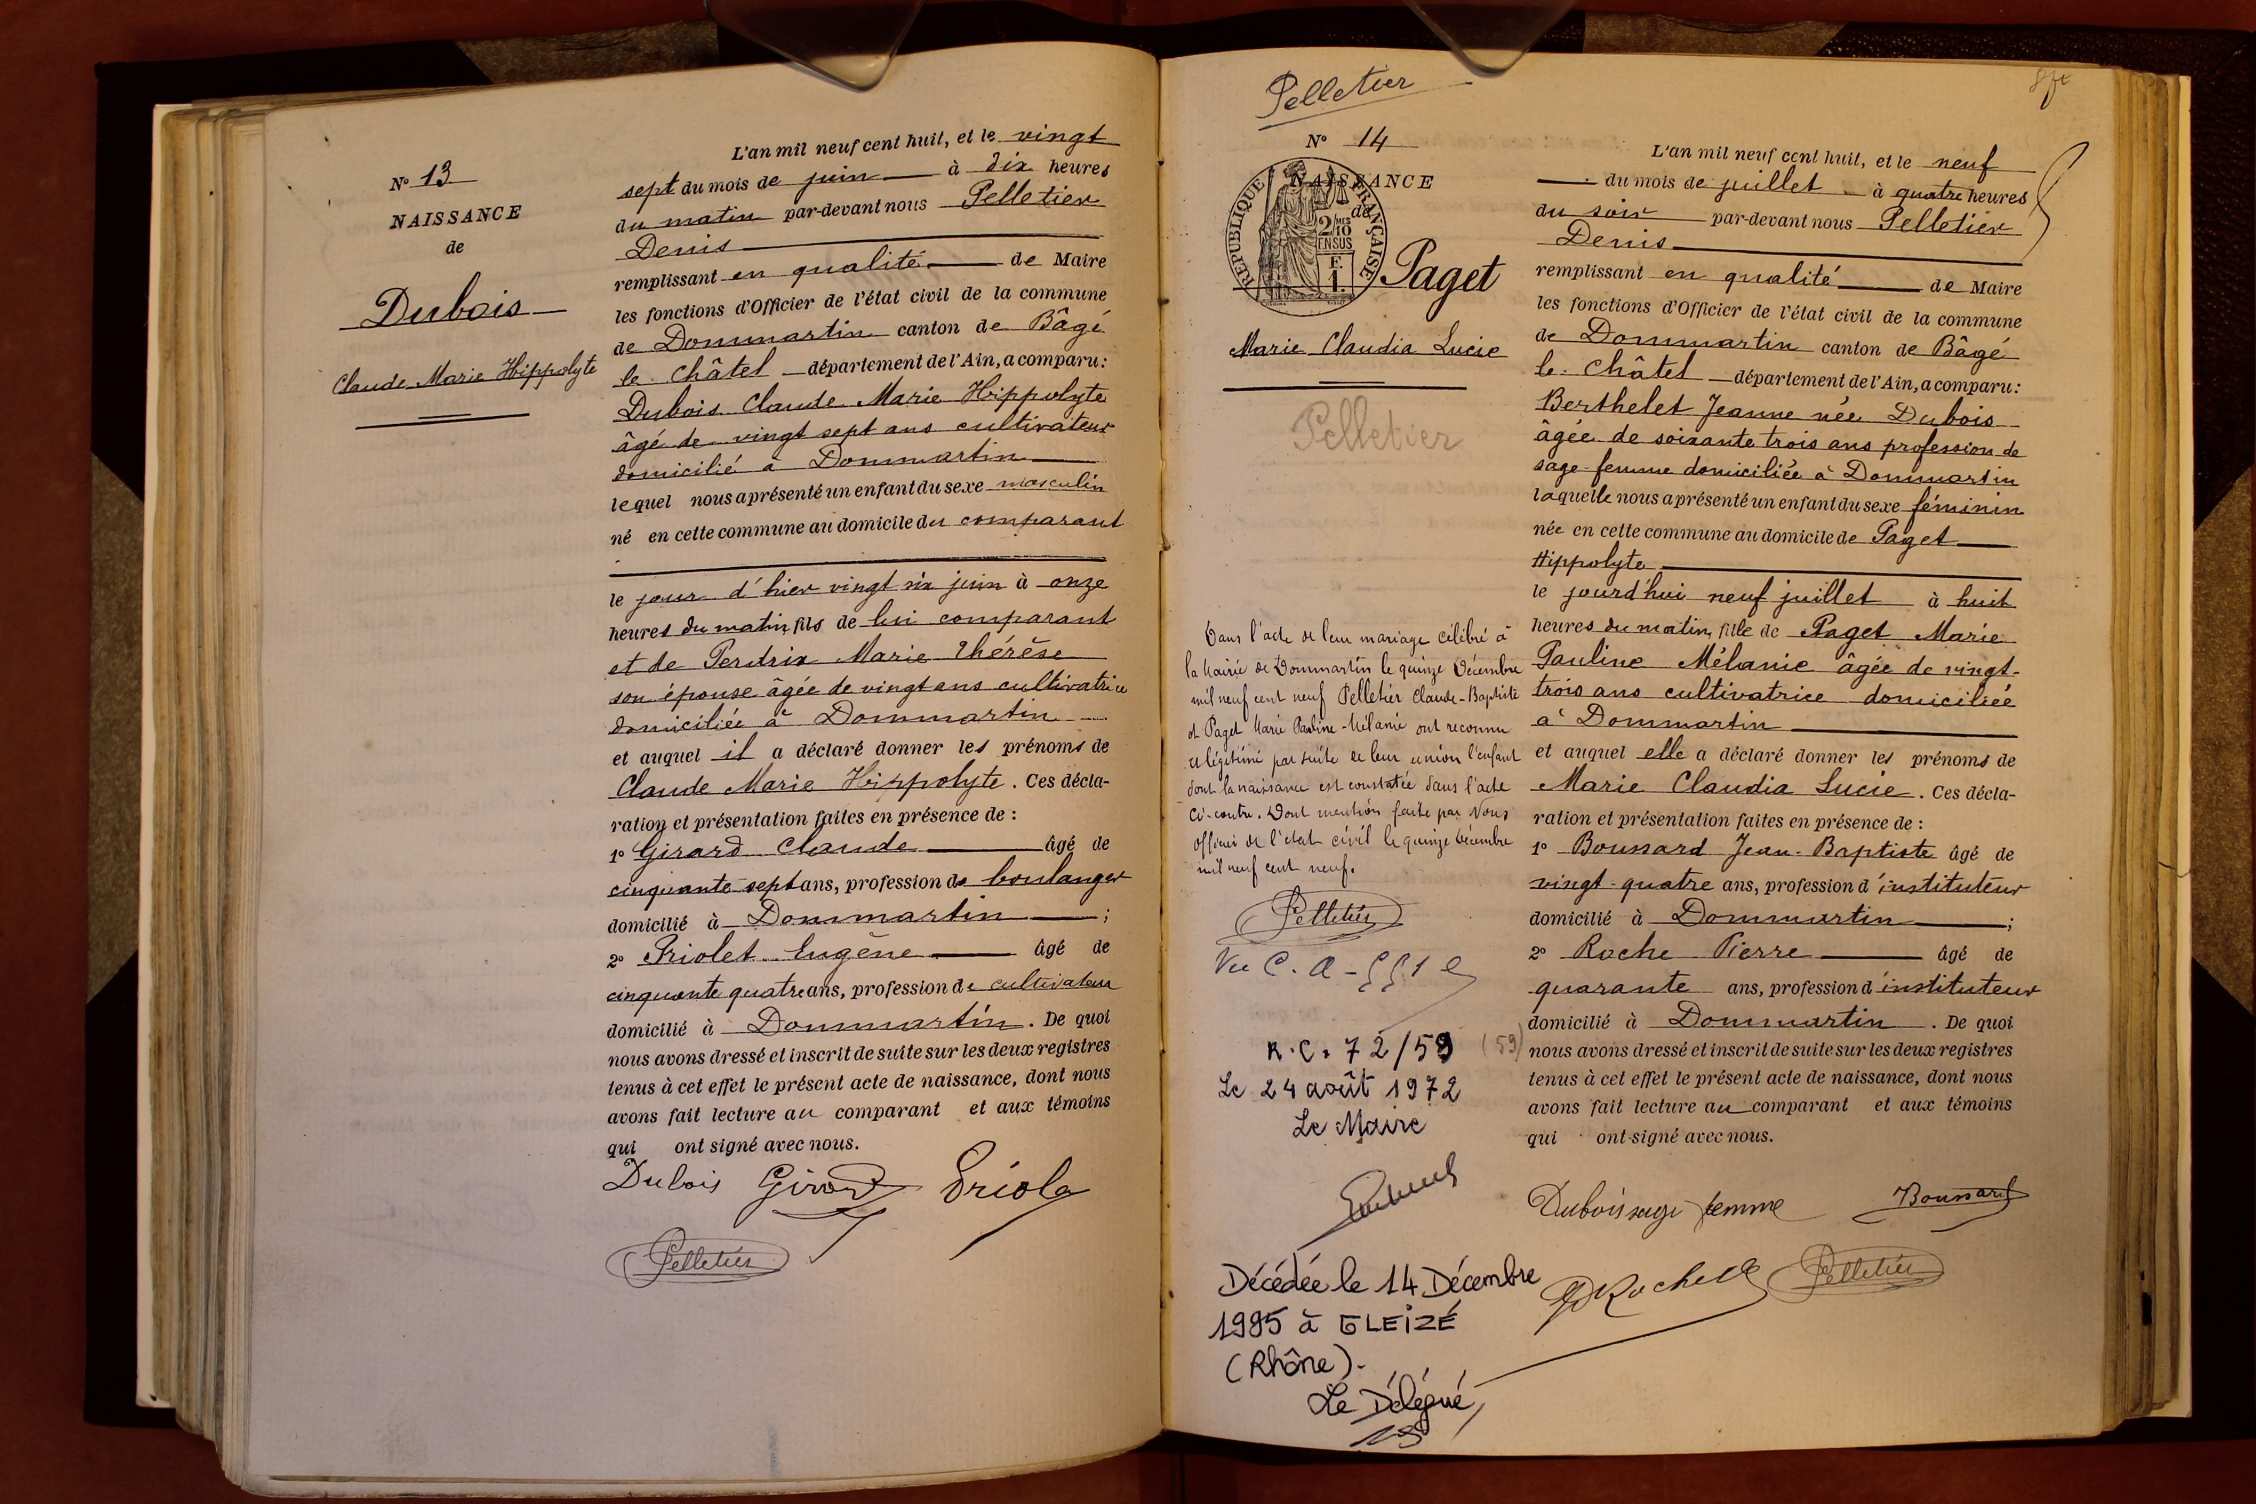 N° 13
NAISSANCE
de
Dubois
Claude Marie Hippolyte
L'an mil neuf cent huit, et le vingt
sept du mois de juin à dix heures
du matin par-devant nous Pelletier
Denis
remplissant en qualité de Maire
les fonctions d'Officier de l'état civil de la commune
de Dommartin canton de Bâgé
le châtel département de l'Ain, a comparu:
Dubois Claude Marie Hippolyte
âgé de vingt sept ans cultivateur
domicilié à Dommartin
lequel nous a présenté un enfant du sexe masculin
né en cette commune au domicile du comparant
le jour d'hier vingt six juin à onze
heures du matin, fils de lui comparant
et de Perdrix Marie Thérèse
son épouse âgée de vingt ans cultivatrice
domiciliée à Dommartin
et auquel il a déclaré donner les prénoms de
Claude Marie Hippolyte. Ces décla-
ration et présentation faites en présence de :
1° Girard Claude âgé de
cinquante sept ans, profession de boulanger
domicilié à Dommartin ;
2° Priolet Eugène âgé de
cinquante quatre ans, profession de cultivateur
domicilié à Dommartin. De quoi
nous avons dressé et inscrit de suite sur les deux registres
tenus à cet effet le présent acte de naissance, dont nous
avons fait lecture au comparant et aux témoins
qui ont signé avec nous.
Dubois Girard
Pelletier
Pelletier
N° 14
NAISSANCE
de
REPUBLIQUE FRANÇAISE
2/10 MES
EN SUS
F.
1.
Paget
Marie Claudia Lucie
Pelletier
Dans l'acte de leur mariage célébré à
la Mairie de Dommartin le quinze Décembre
mil neuf cent neuf Pelletier Claude-Baptiste
et Paget Marie Pauline-Mélanie ont reconnu
et légitimé par suite de leur union l'enfant
dont la naissance est constatée dans l'acte
ci-contre. Dont mention faite par Nous
officier de l'état civil le quinze Décembre
mil neuf cent neuf.
Pelletier
Vu C. A
R.C. 72/59 (59)
Le 24 août 1972
Le Maire
Décédée le 14 Décembre
1995 à GLEIZÉ
(Rhône).
Le Délégué,
L'an mil neuf cent huit, et le neuf
du mois de juillet à quatre heures
du soir par-devant nous Pelletier
Denis
remplissant en qualité de Maire
les fonctions d'Officier de l'état civil de la commune
de Dommartin canton de Bâgé
le châtel département de l'Ain, a comparu:
Berthelet Jeanne née Dubois
âgée de soixante trois ans profession de
sage-femme domiciliée à Dommartin
laquelle nous a présenté un enfant du sexe féminin
née en cette commune au domicile de Paget
Hippolyte
le jourd'hui neuf juillet à huit
heures du matin, fille de Paget Marie
Pauline Mélanie âgée de vingt-
trois ans cultivatrice domiciliée
à Dommartin
et auquel elle a déclaré donner les prénoms de
Marie Claudia Lucie. Ces décla-
ration et présentation faites en présence de :
1° Boussard Jean-Baptiste âgé de
vingt-quatre ans, profession d'instituteur
domicilié à Dommartin ;
2° Roche Pierre âgé de
quarante ans, profession d'instituteur
domicilié à Dommartin. De quoi
nous avons dressé et inscrit de suite sur les deux registres
tenus à cet effet le présent acte de naissance, dont nous
avons fait lecture au comparant et aux témoins
qui ont signé avec nous.
Dubois sage femme Boussard
Roche Pelletier